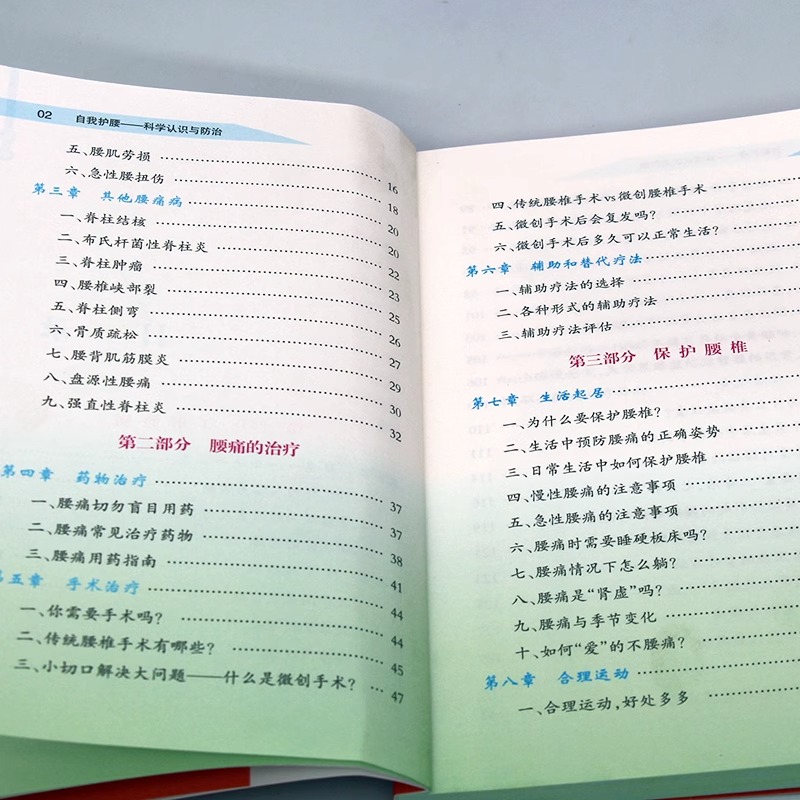 02 自我护腰——科学认识与防治
五、腰肌劳损 …… 16
六、急性腰扭伤 …… 18
第三章 其他腰痛病 …… 20
一、脊柱结核 …… 20
二、布氏杆菌性脊柱炎 …… 22
三、脊柱肿瘤 …… 23
四、腰椎峡部裂 …… 25
五、脊柱侧弯 …… 26
六、骨质疏松 …… 27
七、腰背肌筋膜炎 …… 29
八、盘源性腰痛 …… 30
九、强直性脊柱炎 …… 32
第二部分 腰痛的治疗
第四章 药物治疗 …… 37
一、腰痛切勿盲目用药 …… 37
二、腰痛常见治疗药物 …… 38
三、腰痛用药指南 …… 41
第五章 手术治疗 …… 44
一、你需要手术吗？ …… 44
二、传统腰椎手术有哪些？ …… 45
三、小切口解决大问题——什么是微创手术？ … 47
四、传统腰椎手术vs微创腰椎手术 ……
五、微创手术后会复发吗？ ……
六、微创手术后多久可以正常生活？ ……
第六章 辅助和替代疗法 ……
一、辅助疗法的选择 ……
二、各种形式的辅助疗法 ……
三、辅助疗法评估 ……
第三部分 保护腰椎
第七章 生活起居 ……
一、为什么要保护腰椎？ ……
二、生活中预防腰痛的正确姿势 ……
三、日常生活中如何保护腰椎 ……
四、慢性腰痛的注意事项 ……
五、急性腰痛的注意事项 ……
六、腰痛时需要睡硬板床吗？ ……
七、腰痛情况下怎么躺？ ……
八、腰痛是“肾虚”吗？ ……
九、腰痛与季节变化 ……
十、如何“爱”的不腰痛？ ……
第八章 合理运动 ……
一、合理运动，好处多多 ……